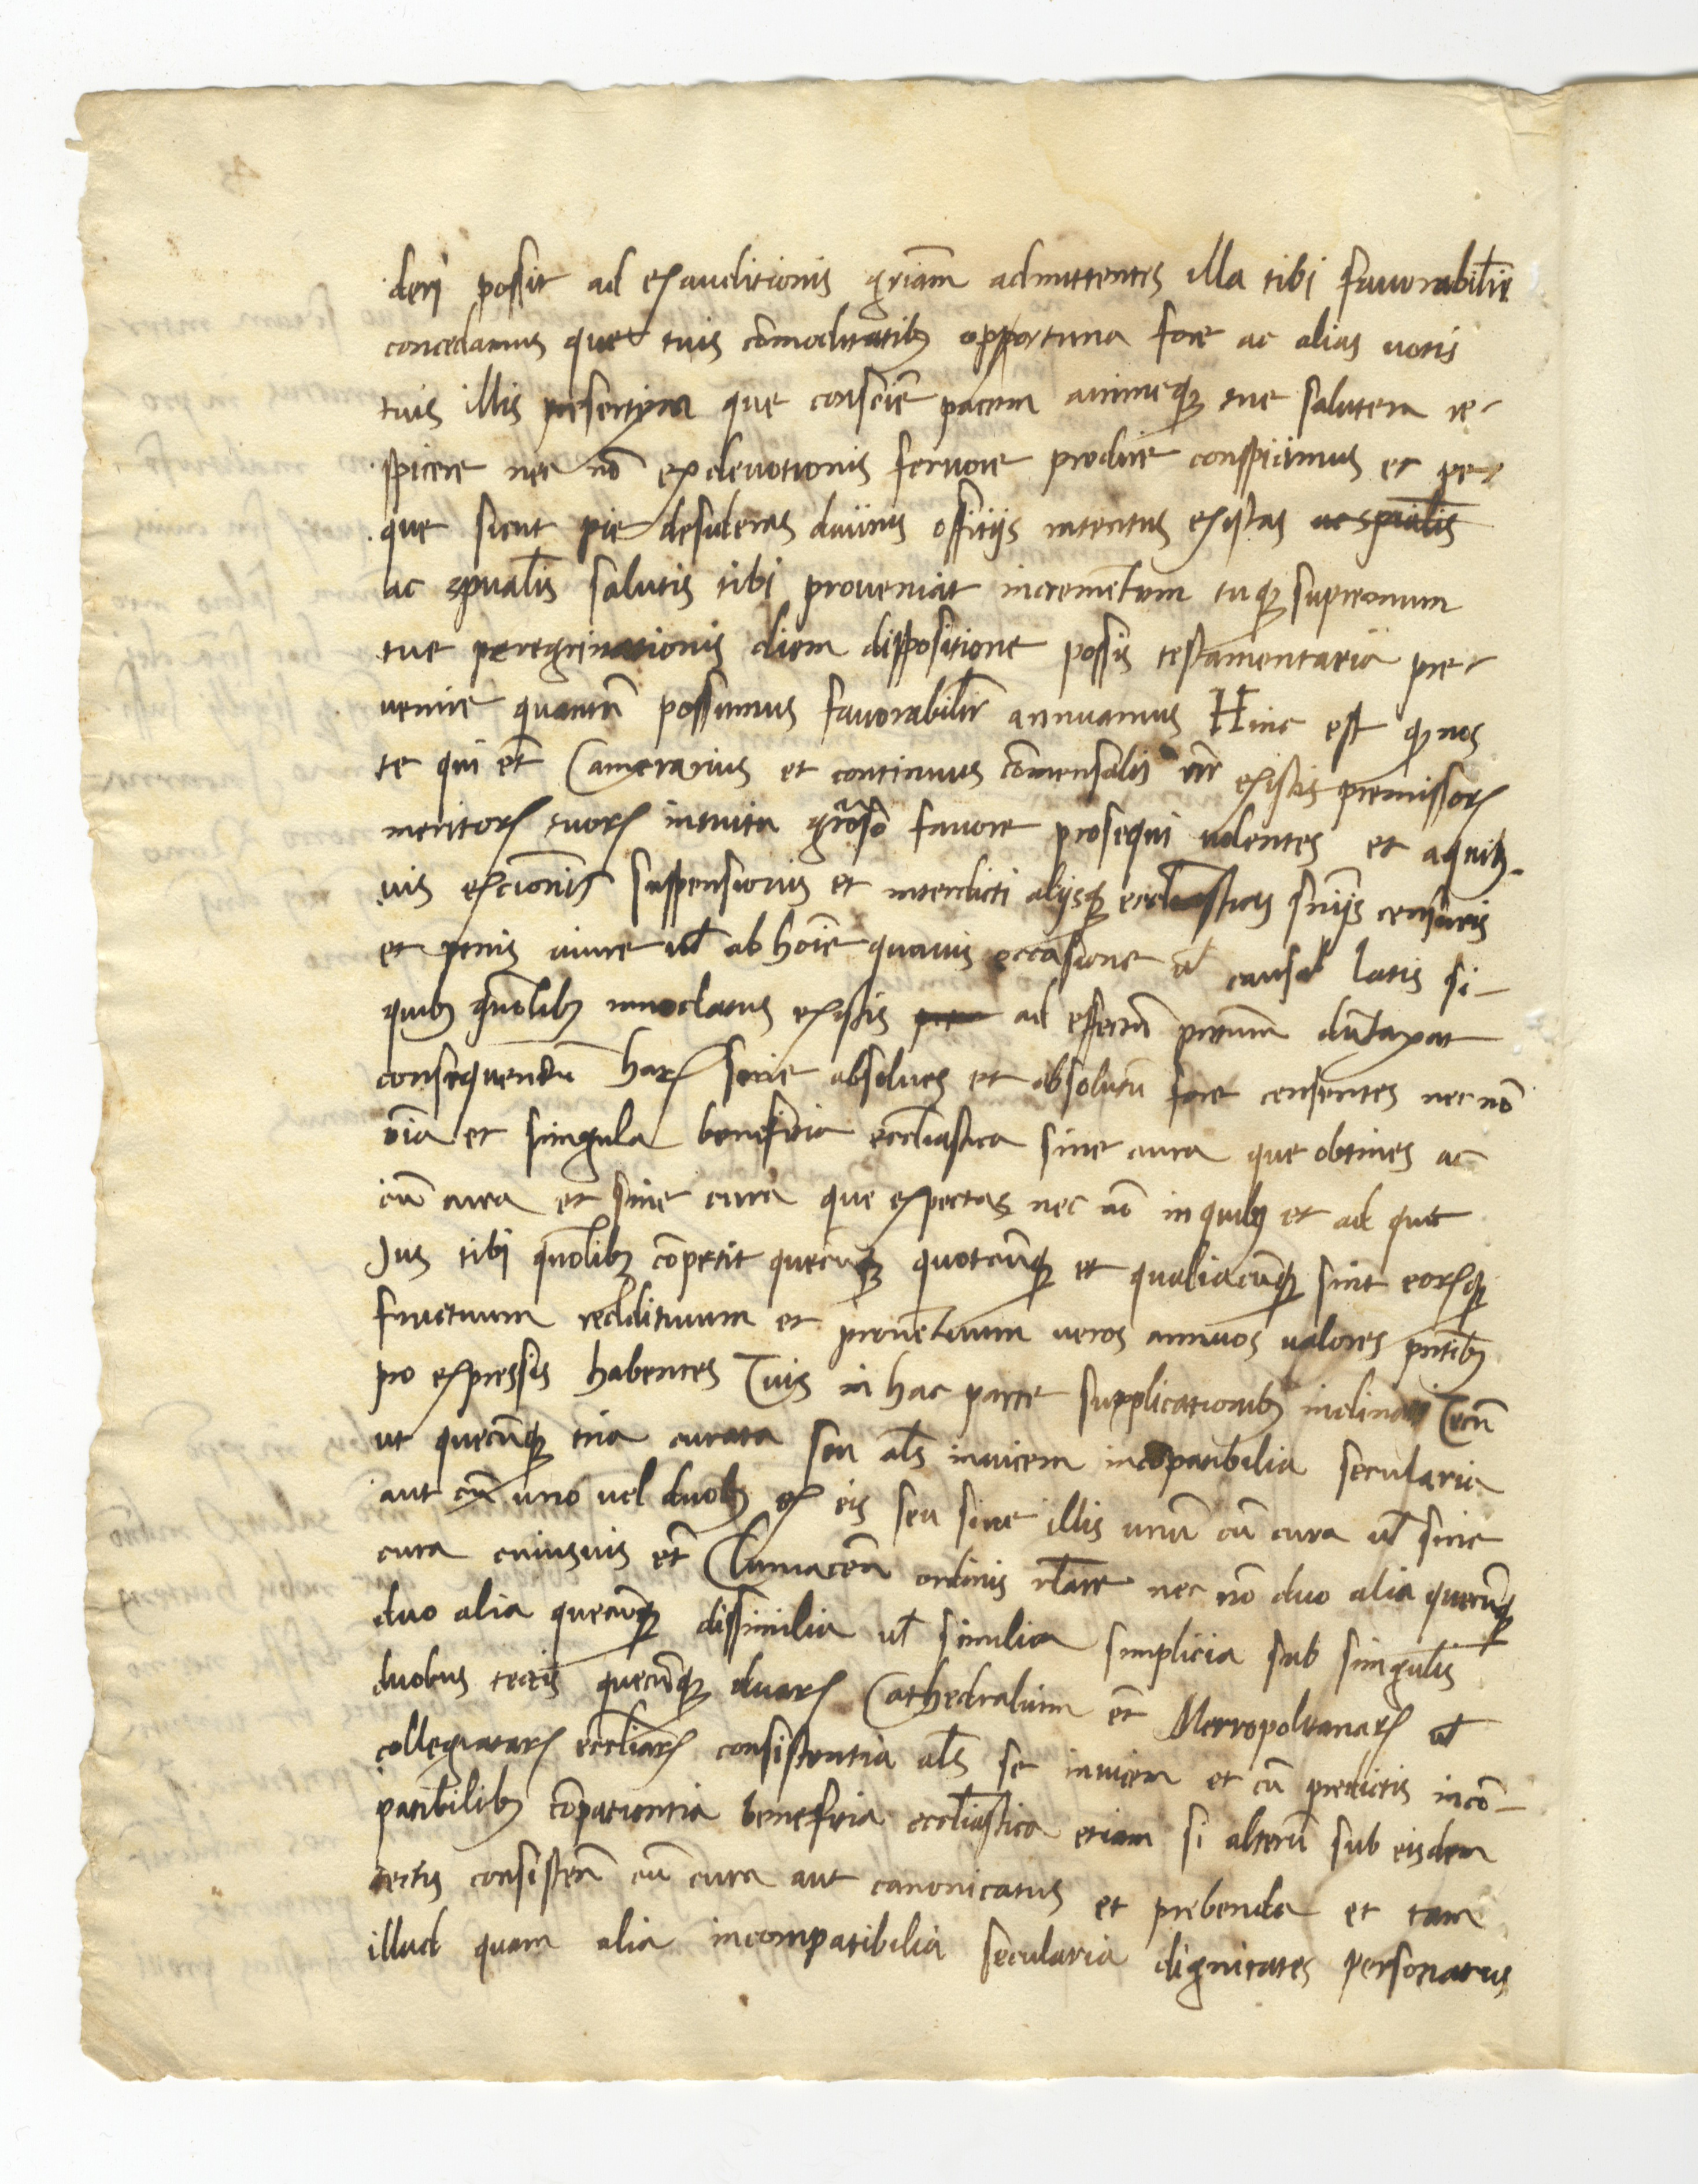 deri possit ad exauditionis gr̄iam admittentes illa tibi fauorabilr̄
concedamus que tuis cōmoditatibꝫ opportuna fore ac alias uotis
tuis illis presertim que consciē pacem animeqꝫ tue salutem re-
spicere nec nō ex deuotionis feruore prodire conspicimus et ve-
que sicut pie desideras diuinis offitijs intentus existas ac spūalis
ac spūalis salutis tibi proueniat incrementum tuqꝫ supremum
tue peregrinationis diem dispositione possis testamentaria pre-
uenire quantū possumus fauorabilr̄ annuamus Hinc est qꝫ nos
te qui et̄ Camerarius et continuus cōmensalis nr̄ existis premissoꝝ
meritoꝝ tuoꝝ intuitu gr̄oso fauore prosequi uolentes et a quibꝫ-
uis excōnis suspensionis et interdicti alijsqꝫ eccl̄iasticis snījs censuris
et penis a iure ul̄ ab hoīe quauis occasione ul̄ causa latis si-
quibꝫ quōlibꝫ innodatus existis ad effectū pn̄tium dūtaxat
consequendū haꝝ serie absolues et absolutū fore censentes nec nō
oīa et singula benefitia eccl̄iastica sine cura que obtines ac
cū cura et sine cura que expectas nec nō in quibꝫ et ad que
Jus tibi quōlibꝫ cōpetit quecūqꝫ quotcūqꝫ et qualiacūqꝫ sint eoꝝqꝫ
fructuum reddituum et prouentuum ueros annuos valores pn̄tibꝫ
pro expressis habentes Tuis in hac parte supplicationibꝫ inclinati Tecū
ut quecūqꝫ tria curata seu als̄ inuicem incōpatibilia secularia
aut cū uno uel duobꝫ ex eis seu sine illis unū cū cura ul̄ sine
cura cuiusuis et̄ Cluniaceñ ordinis rl̄are nec nō duo alia quecūqꝫ
duo alia quecūqꝫ dissimilia ul̄ similia simplicia sub singulis
duobus tectis quecūqꝫ duaꝝ Cathedralium et̄ Metropolitanaꝝ ul̄
collegiataꝝ eccl̄iaꝝ consistentia als̄ se inuicem et cū predictis incō-
patibilibꝫ cōpatientia benefitia eccl̄iastica etiam si alterū sub eisdem
tectis consisteñ cū cura aut canonicatus et prebenda et tam
illud quam alia incompatibilia secularia dignitates personatus